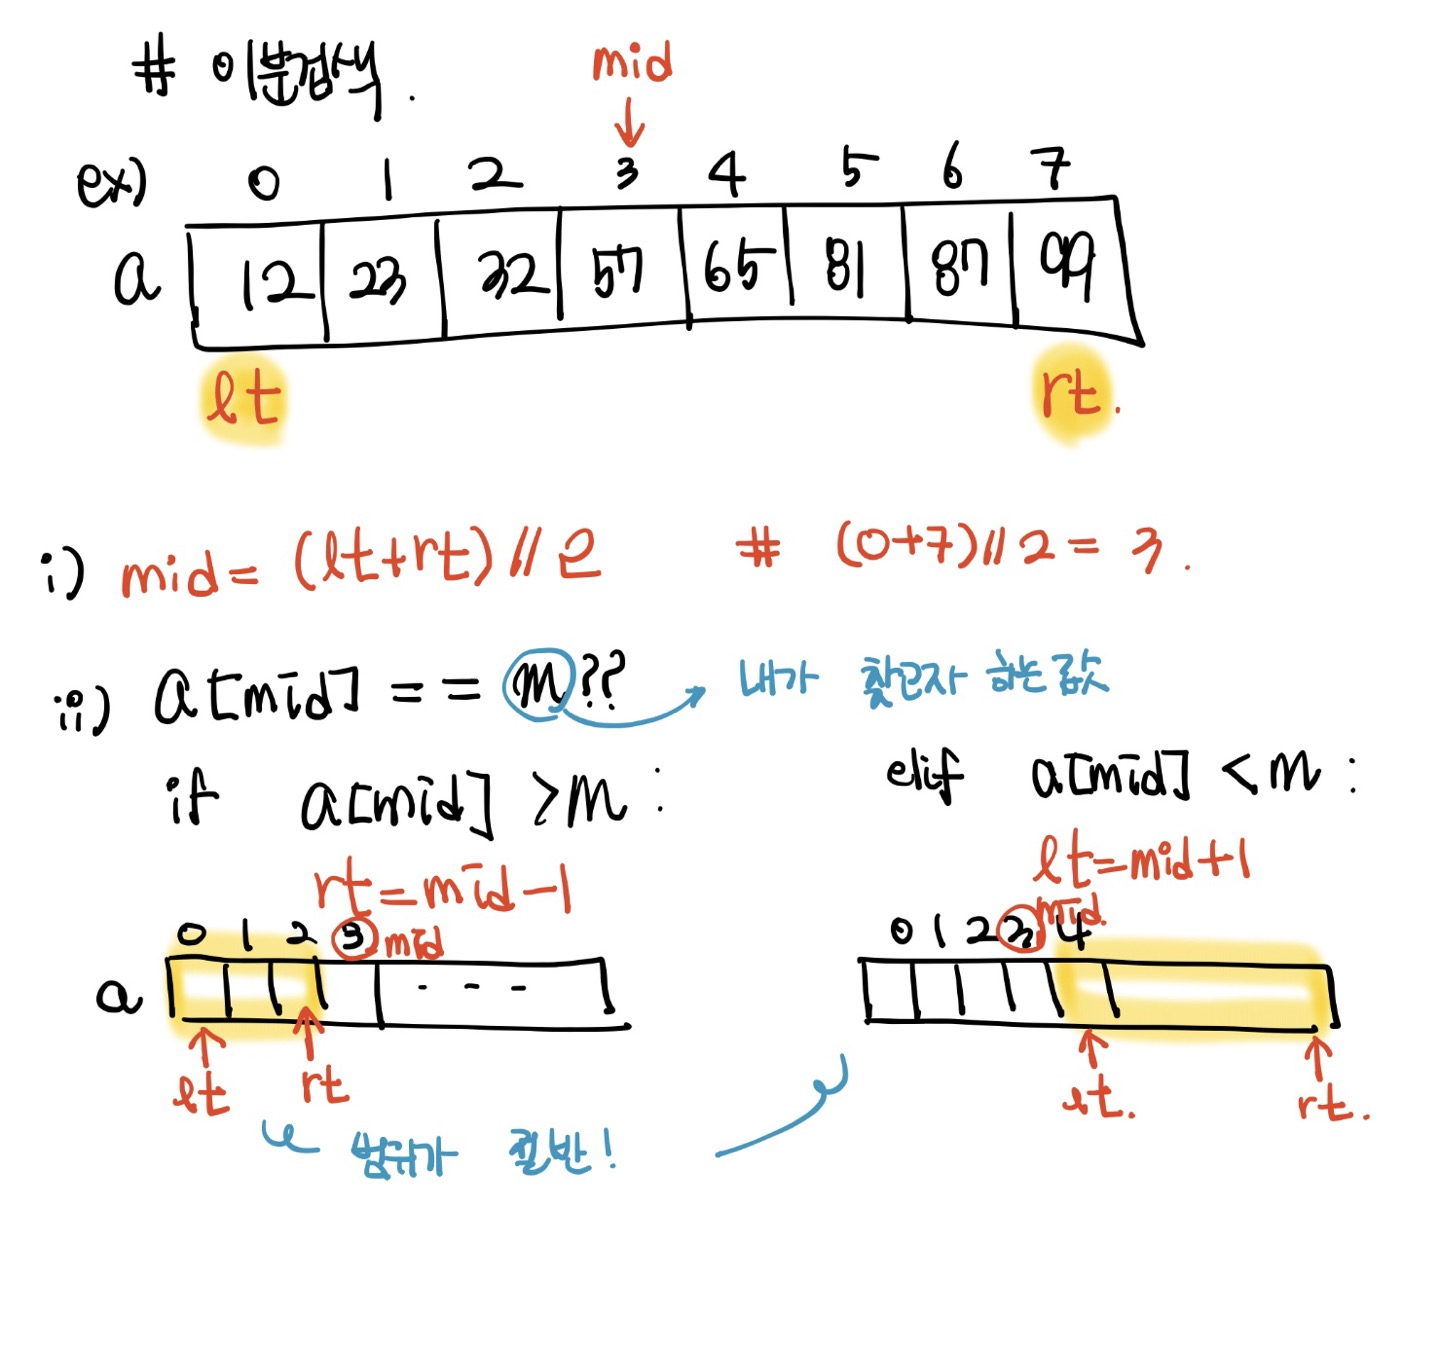 # 이분검색.
mid
ex) 0 1 2 3 4 5 6 7
a 12 23 32 57 65 81 87 99
lt rt.
i) mid = (lt+rt)//2 # (0+7)//2 = 3.
ii) a[mid] == m?? 내가 찾고자 하는 값
if a[mid] >m : elif a[mid] <m :
rt=mid-1 lt=mid+1
0 1 2 3 mid 0 1 2 3 mid. 4
a - - -
lt rt lt. rt.
범위가 절반!